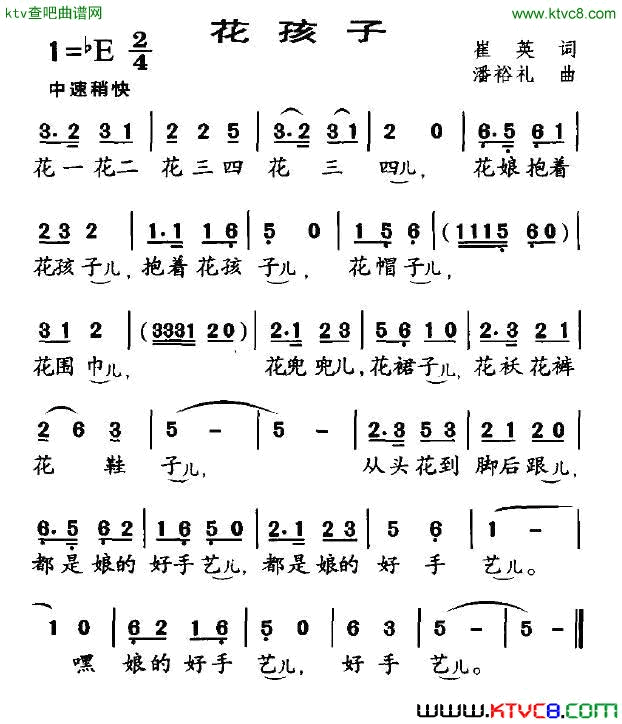 ktv查吧曲谱网
http://www.ktvc8.com
花孩子
1=♭E 2/4
崔英 词
潘裕礼 曲
中速稍快
3.2 31 | 2 2 5 | 3.2 31 | 2 0 | 6.5 61 |
花一花二 花三四 花 三 四儿, 花娘抱着
23 2 | 1.1 16 | 5 0 | 1 56 | (1115 60) |
花孩子儿, 抱着花孩 子儿, 花帽子儿,
31 2 | (3331 20) | 2.1 23 | 56 10 | 2.3 21 |
花围巾儿, 花兜兜儿, 花裙子儿, 花袄花裤
2 6 3 | 5 - | 5 - | 2.3 53 | 21 20 |
花 鞋 子儿, 从头花到 脚后跟儿,
6.5 62 | 16 50 | 2.1 23 | 5 6 | 1 - |
都是娘的 好手艺儿, 都是娘的 好 手 艺儿。
1 0 | 62 16 | 5 0 | 6 3 | 5 - | 5 - ‖
嘿 娘的好手 艺儿, 好手 艺儿。
www.KTVC8.com